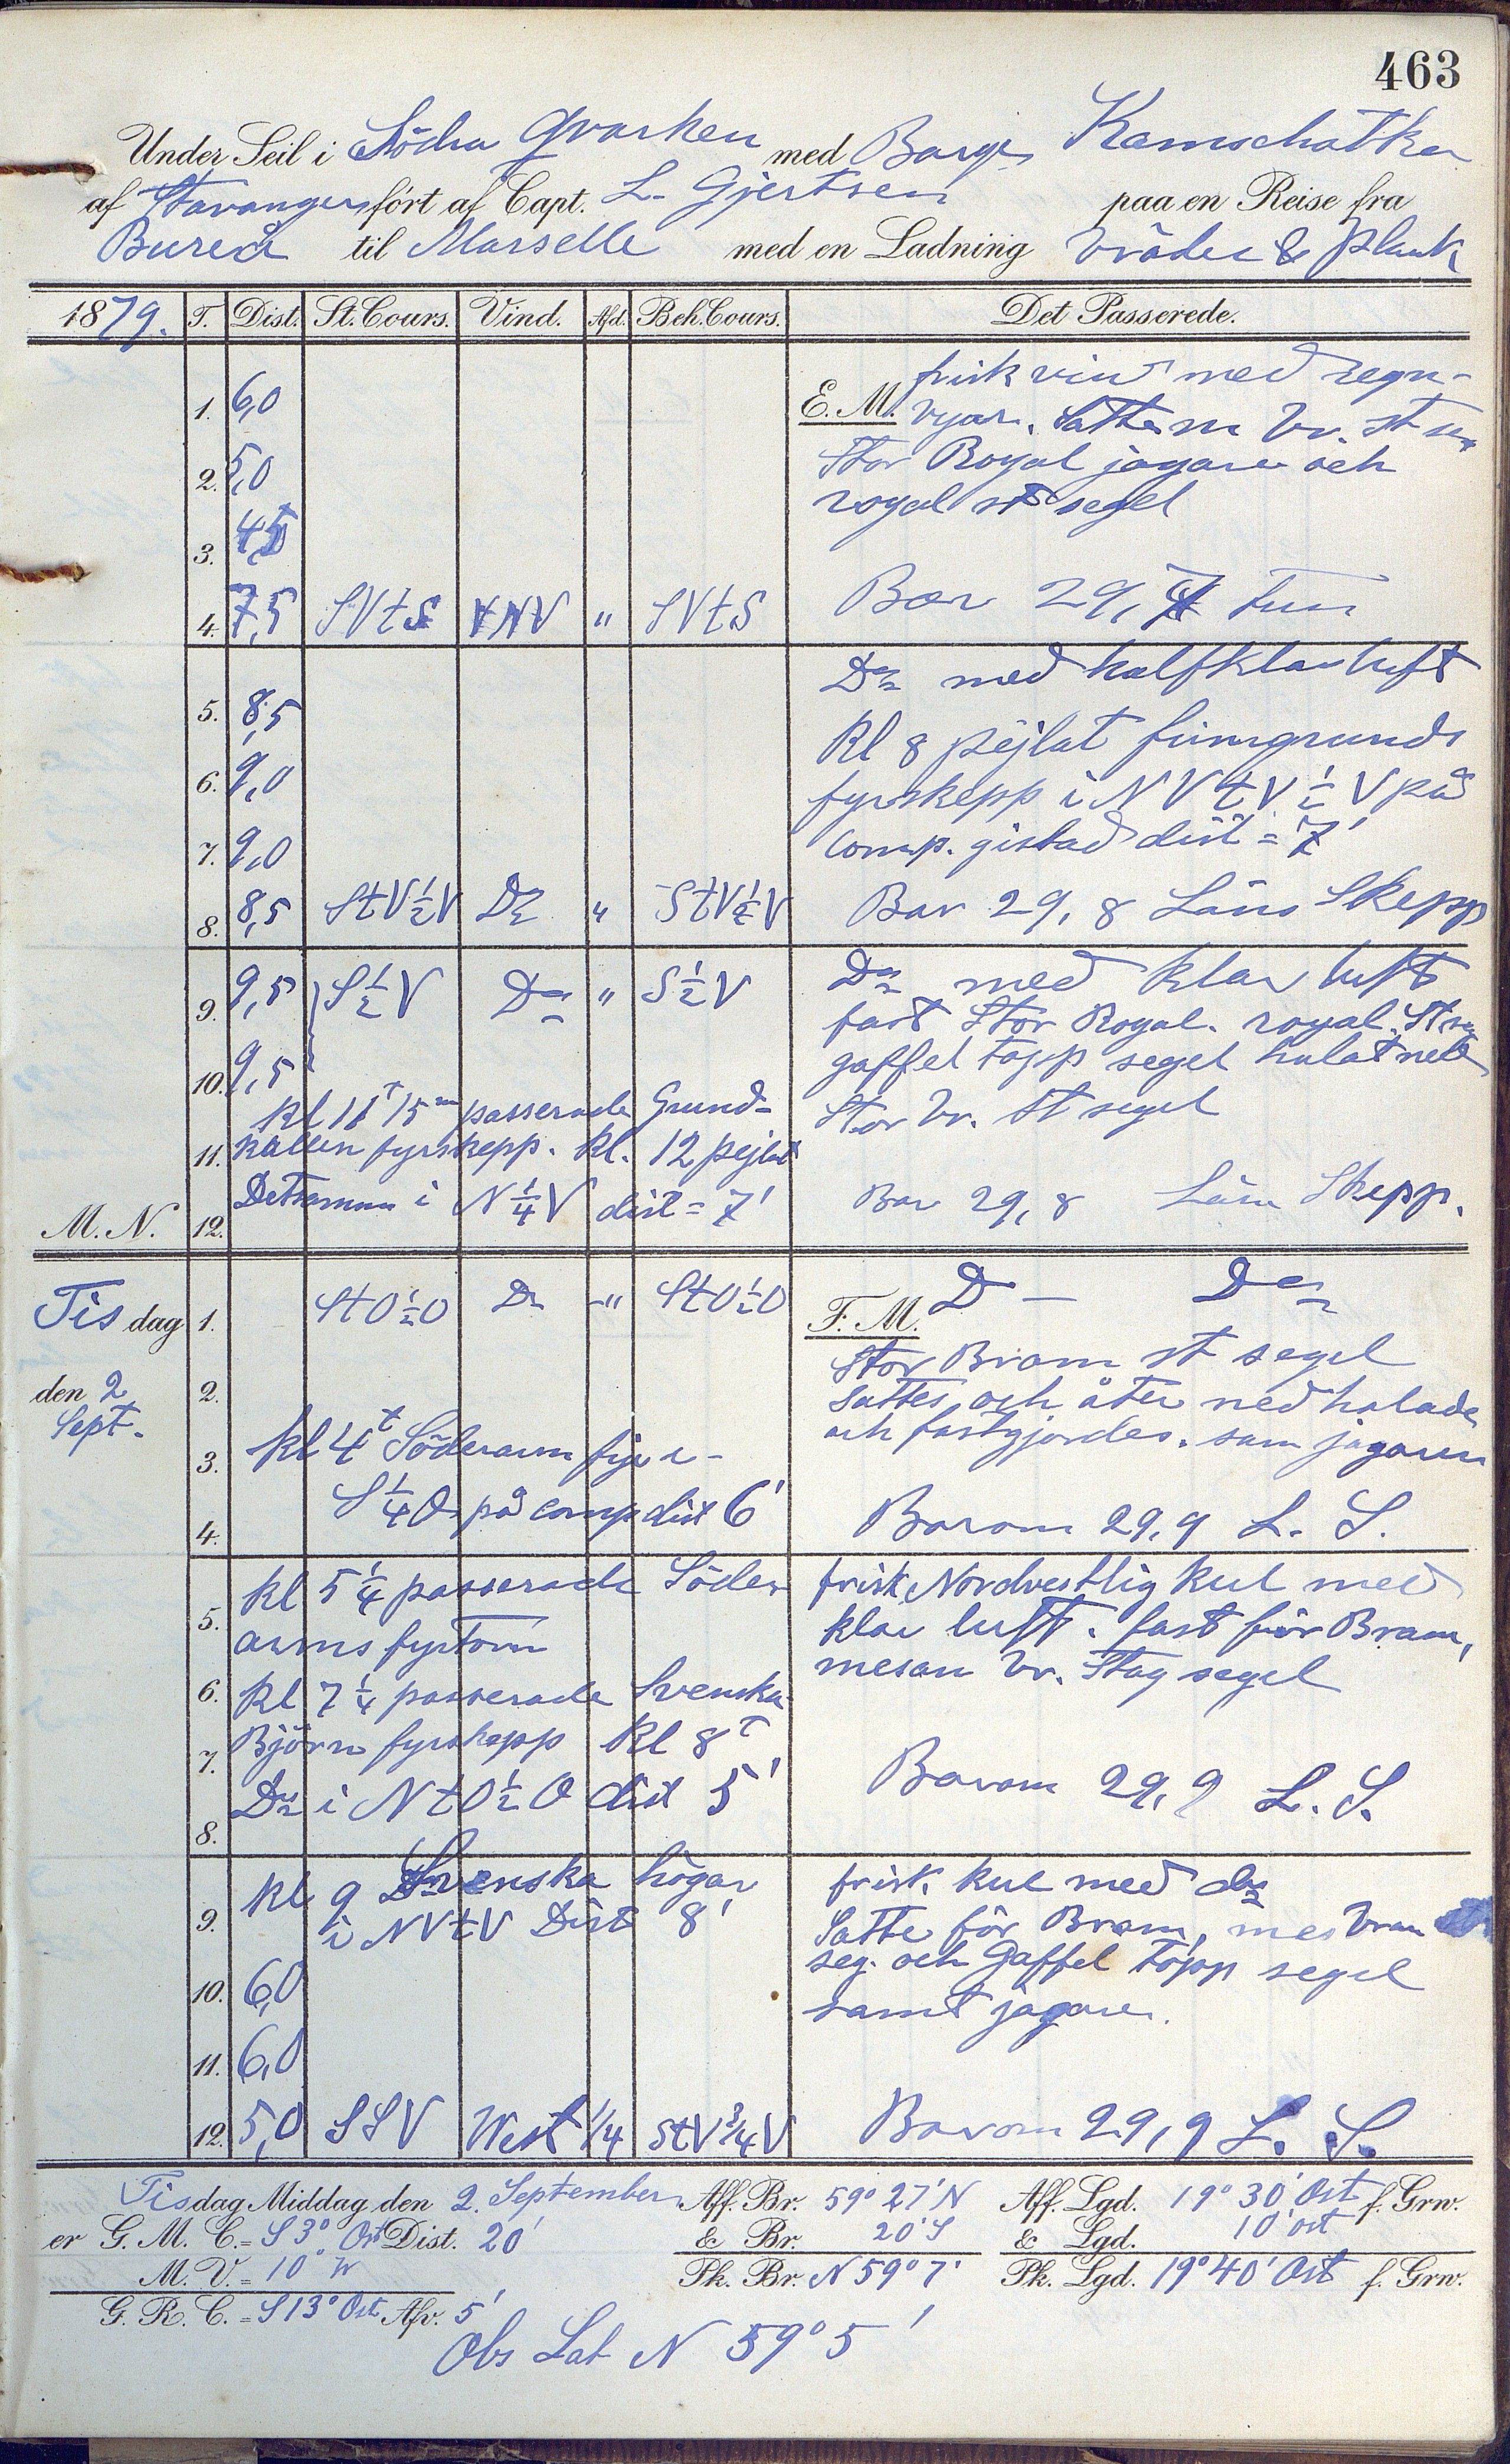 463
Under Seil i Södra Qvarken med Barge Kamschatka
af Stavanger ført af Capt. L. Gjertsen paa en Reise fra
Bureå til Marselle med en Ladning bräder & plank
1879. T. Dist. St. Cours. Vind. Afd. Beh. Cours. Det Passerede.
E. M. frisk vind med regn-
1. 6,0 byar. Satte m Br. st
2. 5,0 Stor Royal jagare och
royal st segel
3. 4,5
4. 7,5 SVtS VNV " SVtS Bar 29,7
Do med halfklar luft
5. 8,5
Kl 8 pejlat finngrunds
6. 9,0 fyrskepp i NVtV ½ V på
7. 9,0 comp. gistad dist = 7'
8. 8,5 StV½V Do " StV½V Bar 29,8 Läns Skepp
9. 9,5 S½V Do " S½V Do med klar luft
fast Stor Royal. royal. St seg
10. 9,5 gaffel topp segel halat ned
Kl 11t 15m passerade Grund- Stor Br. St segel
11. kallen fyrskepp. Kl. 12 pejlat
M. N. 12. Detsamma i N¼V dist = 7' Bar 29,8 Läns Skepp.
Tisdag 1. StO½O Do " StO½O F. M. D — Do
den 2 Sept. 2. Stor Bram st segel
sattes och åter ned halade
3. Kl 4t Söderarm fyr i - och fastgjordes. sam jagaren
4. S¼O på comp dist 6' Barom 29,9 L. S.
Kl 5¼ passerade Söder frisk Nordvestlig kul med
5. arms fyrtorn klar luft. fast för Bram,
mesan Br. Stag segel
6. Kl 7¼ passerade Svenska
7. Björn fyrskepp Kl 8t
8. Do i NtO½O dist 5' Barom 29,9 L. S.
Kl 9 Svenska högar frisk kul med do
9. i NVtV Dist 8' Satte för Bram, mes bram
10. 6,0 seg. och Gaffel topp segel
samt jagare.
11. 6,0
12. 5,0 SSV West ¼ StV¾V Barom 29,9 L. S.
Tisdag Middag den 2. September Aff. Br. 59° 27' N Aff. Lgd. 19° 30' Ost f. Grw.
er G. M. C. = S 3° Ost Dist. 20' & Br. 20' S & Lgd. 10' ost
M. V. = 10° W Pk. Br. N 59° 7' Pk. Lgd. 19° 40' Ost f. Grw.
G. R. C. = S 13° Ost Afv. 5'
Obs Lat N 59° 5'